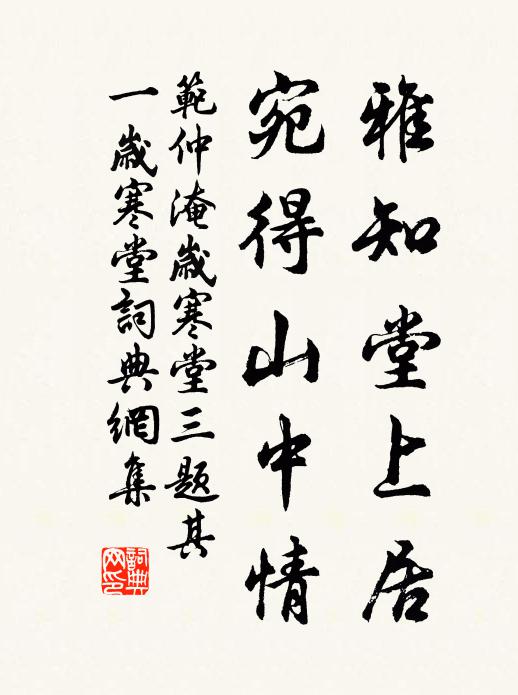 雅知堂上居
宛得山中情
範仲淹歲寒堂三題其
一歲寒堂詞典網集
詞典
网印